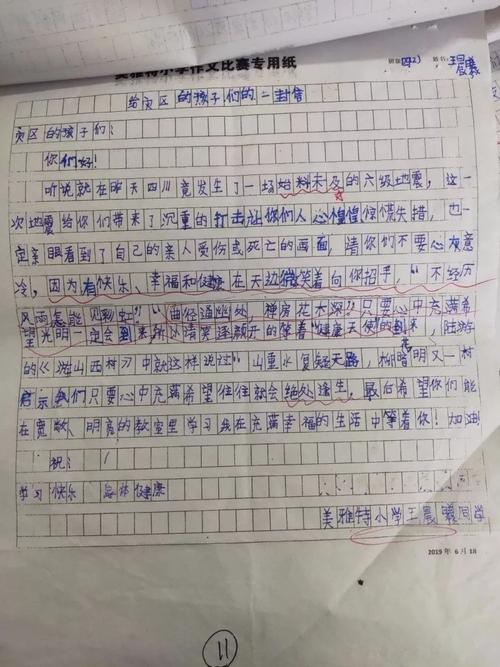 美雅特小学作文比赛专用纸 班级 四(2) 姓名: 王晨曦
给灾区的孩子们的一封信
灾区的孩子们:
你们好!
听说就在昨天四川竟发生了一场始料未及的六级地震,这一
次地震给你们带来了沉重的打击让你们人心惶惶惊慌失措,也一
定亲眼看到了自己的亲人受伤或死亡的画面,请你们不要心灰意
冷,因为有快乐、幸福和健康在天边微笑着向你招手,“不经历
风雨怎能见彩虹”“曲径通幽处,禅房花木深”只要心中充满希
望光明一定会到来所以请笑逐颜开的等着“健康天使的到来,陆游
的《游山西村》中就这样说过“山重水复疑无路,柳暗花明又一村
启示我们只要心中充满希望往往就会绝处逢生,最后希望你们能
在宽敞、明亮的教室里学习我在充满幸福的生活中等着你!加油!
祝:
学习快乐 身体健康
美雅特小学王晨曦同学
2019年6月18
11